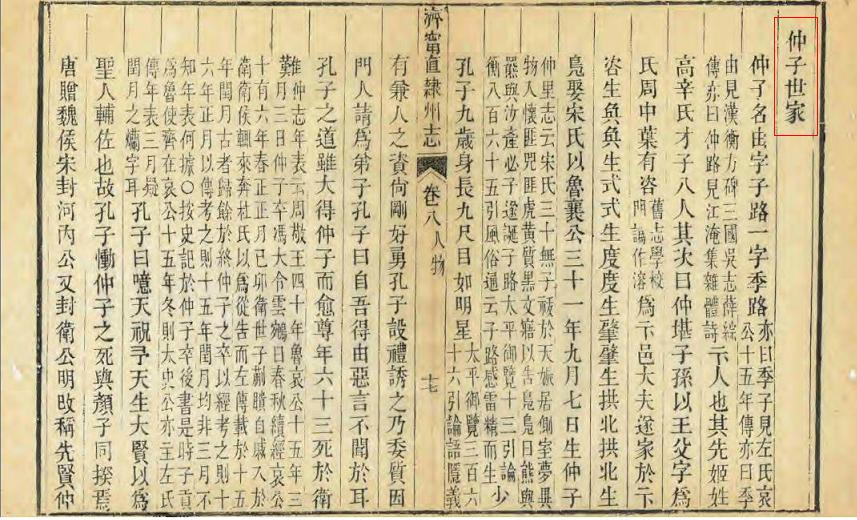 仲子世家
仲子名由字子路一字季路亦曰季子見左氏哀
公十五年傳亦曰季
由見漢衡方碑三國吳志薛綜
傳亦曰仲路見江淹集雜體詩卞人也其先姬姓
高辛氏才子八人其次曰仲堪子孫以王父字爲
氏周中葉有咨舊志學校
門譌作溶爲卞邑大夫遂家於卞
咨生奐奐生式式生度度生肇肇生拱北拱北生
鳧娶宋氏以魯襄公三十一年九月七日生仲子
仲里志云宋氏三十無子祓於天娠居側室夢異
物入懷匪兕匪虎黃質黑文寤以告鳧鳧曰熊與
羆與汝產必子遂誕子路太平御覽十三引論
衡八百六十五引風俗通云子路感雷精而生少
孔子九歲身長九尺目如明星太平御覽三百六
十六引論語隱義
濟甯直隸州志
卷八人物
十七
有兼人之資尙剛好勇孔子設禮誘之乃委質因
門人請爲弟子孔子曰自吾得由惡言不聞於耳
孔子之道雖大得仲子而愈尊年六十三死於衛
難仲志年表云周敬王四十年魯哀公十五年三
月三日仲子卒馮大令雲鵷曰春秋續經哀公
十有六年春正正月己卯衛世子蒯聵自戚入於
衛衛侯輒來奔杜氏以爲從吿而左傳載於十五
年閏月古者歸餘於終仲子之卒以經考之則十
六年正月以傳考之則十五年閏月均非三月不
知年表何據○按史記於仲子卒後書是時子貢
爲魯使齊在哀公十五年冬則太史公亦主左氏
傳年表三月疑
閏月之爛字耳孔子曰噫天祝予天生大賢以爲
聖人輔佐也故孔子慟仲子之死與顏子同揆焉
唐贈魏侯宋封河內公又封衛公明改稱先賢仲